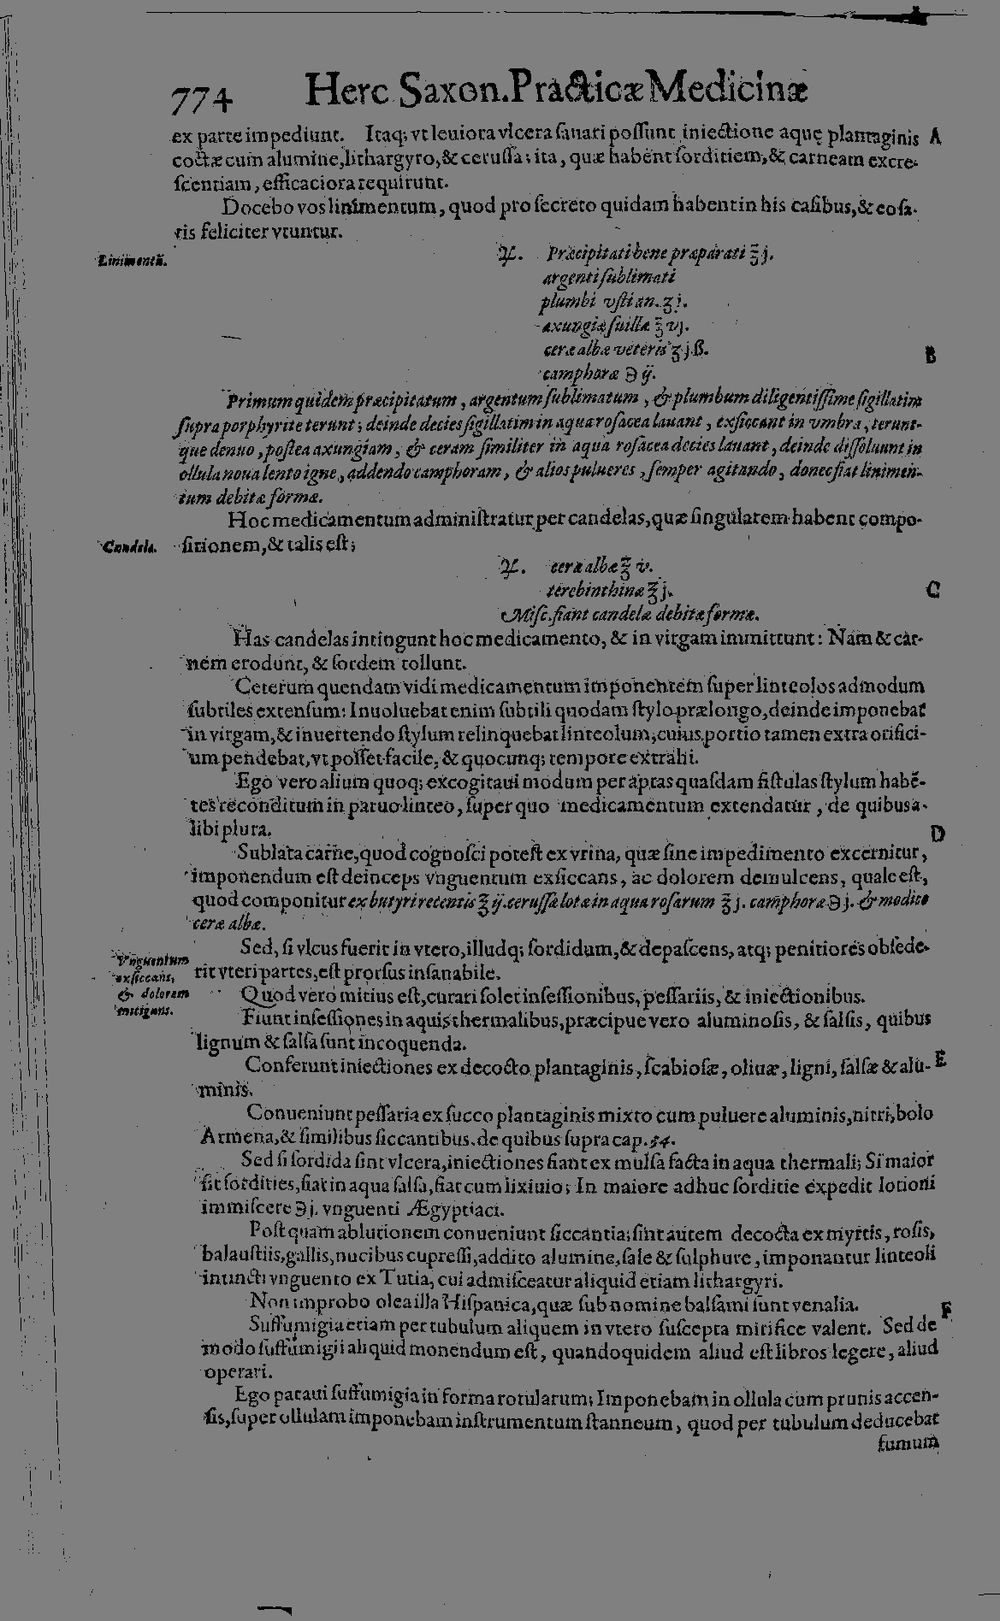 774 Herc Saxon. Practicæ Medicinæ
ex parte impediunt. Itaq; vt leuiora vlcera sanari possunt iniectione aquę plantaginis A
coctæ cum alumine, lithargyro, & cerussa; ita, quæ habent sorditiem, & carneam excre-
scentiam, efficaciora requirunt.
Docebo vos linimentum, quod pro secreto quidam habent in his casibus, & eo sa-
tis feliciter vtuntur.
Linimentũ.
♃. Præcipitati bene præparati ℥ j.
argenti sublimati
plumbi vsti an. ʒ j.
axungiæ suillæ ℥ vj.
ceræ albæ veteris ʒ j.ß. B
camphoræ ℈ ij.
Primum quidem præcipitatum, argentum sublimatum, & plumbum diligentissime sigillatim
supra porphyrite terunt; deinde decies sigillatim in aqua rosacea lauant, exsiccant in vmbra, terunt-
que denuo, postea axungiam, & ceram similiter in aqua rosacea decies lauant, deinde dissoluunt in
ollula noua lento igne, addendo camphoram, & alios pulueres, semper agitando, donec fiat linimen-
tum debitæ formæ.
Hoc medicamentum administratur per candelas, quæ singularem habent compo-
Candela. sitionem, & talis est;
♃. ceræ albæ ℥ v.
terebinthinæ ℥ j. C
Misc. fiant candelæ debitæ formæ.
Has candelas intingunt hoc medicamento, & in virgam immittunt: Nam & car-
nem erodunt, & sordem tollunt.
Ceterum quendam vidi medicamentum imponentem super linteolos admodum
subtiles extensum: Inuoluebat enim subtili quodam stylo prælongo, deinde imponebat
in virgam, & inuertendo stylum relinquebat linteolum, cuius portio tamen extra orifici-
um pendebat, vt posset facile, & quocunq; tempore extrahi.
Ego vero alium quoq; excogitaui modum per aptas quasdam fistulas stylum habẽ-
tes reconditum in paruo linteo, super quo medicamentum extendatur, de quibus a-
libi plura. D
Sublata carne, quod cognosci potest ex vrina, quæ sine impedimento excernitur,
imponendum est deinceps vnguentum exsiccans, ac dolorem demulcens, quale est,
quod componitur ex butyri recentis ℥ ij. cerussæ lotæ in aqua rosarum ℥ j. camphoræ ℈ j. & modico
ceræ albæ.
Sed, si vlcus fuerit in vtero, illudq; sordidum, & depascens, atq; penitiores obsede-
rit vteri partes, est prorsus insanabile.
Vnguentum
exsiccans,
& dolorem
mitigans.
Quod vero mitius est, curari solet insessionibus, pessariis, & iniectionibus.
Fiunt insessiones in aquis thermalibus, præcipue vero aluminosis, & salsis, quibus
lignum & salsa sunt incoquenda.
Conferunt iniectiones ex decocto plantaginis, scabiosæ, oliuæ, ligni, salsæ & alu- E
minis.
Conueniunt pessaria ex succo plantaginis mixto cum puluere aluminis, nitri, bolo
Armena, & similibus siccantibus. de quibus supra cap. 34.
Sed si sordida sint vlcera, iniectiones fiant ex mulsa facta in aqua thermali; Si maior
sit sordities, fiat in aqua salsa, fiat cum lixiuio; In maiore adhuc sorditie expedit lotioni
immiscere ℈ j. vnguenti Ægyptiaci.
Postquam ablutionem conueniunt siccantia; sint autem decocta ex myrtis, rosis,
balaustiis, gallis, nucibus cupressi, addito alumine, sale & sulphure, imponantur linteoli
inuncti vnguento ex Tutia, cui admisceatur aliquid etiam lithargyri.
Non improbo olea illa Hispanica, quæ sub nomine balsami sunt venalia. F
Suffumigia etiam per tubulum aliquem in vtero suscepta mirifice valent. Sed de
modo suffumigij aliquid monendum est, quandoquidem aliud est libros legere, aliud
operari.
Ego paraui suffumigia in forma rotularum; Imponebam in ollula cum prunis accen-
sis, super ollulam imponebam instrumentum stanneum, quod per tubulum deducebat
fumum